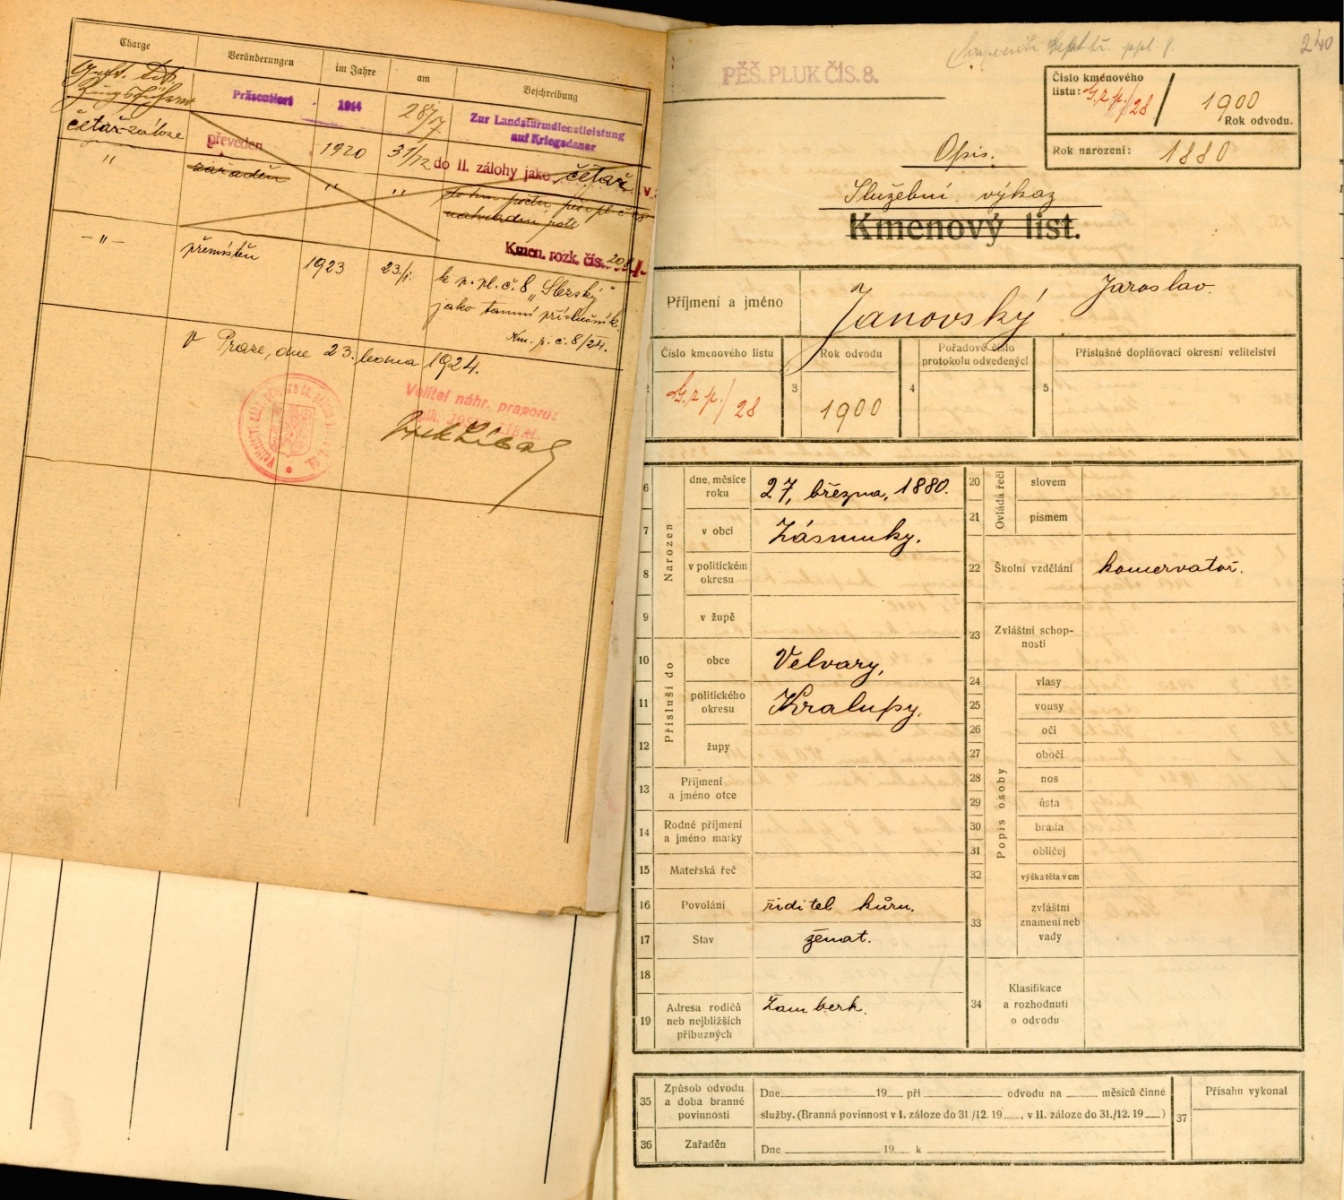 Charge Veränderungen im Jahre am Beschreibung
Präsentiert 1914 28/7 Zur Landsturmdienstleistung
auf Kriegsdauer
četař zálože převeden 1920 31/12 do II. zálohy jako četař v
" zařaděn " "
Kmen. rozk. čís.
– " – přemístěn 1923 23/I. k p. pl. č. 8 „Slezský"
jako tamní příslušník.
Km. p. č. 8/24.
V Praze, dne 23. ledna 1924.
Velitel náhr. praporu:
240
PĚŠ. PLUK ČÍS. 8.
Číslo kmenového
listu: /28 / 1900
Rok odvodu.
Rok narození: 1880
Opis.
Služební výkaz
Kmenový list.
Příjmení a jméno Janovský Jaroslav.
Číslo kmenového listu Rok odvodu Pořadové číslo
protokolu odvedených Příslušné doplňovací okresní velitelství
/28 3 1900 4 5
6 Narozen dne, měsíce
roku 27. března, 1880.
7 v obci Zásmuky.
8 v politickém
okresu
9 v župě
10 Přísluší do obce Velvary,
11 politického
okresu Kralupy.
12 župy
13 Příjmení
a jméno otce
14 Rodné příjmení
a jméno matky
15 Mateřská řeč
16 Povolání řiditel kůru.
17 Stav ženat.
18
19 Adresa rodičů
neb nejbližších
příbuzných Žamberk.
20 Ovládá řeči slovem
21 písmem
22 Školní vzdělání konservatoř.
23 Zvláštní schop-
nosti
24 Popis osoby vlasy
25 vousy
26 oči
27 obočí
28 nos
29 ústa
30 brada
31 obličej
32 výška těla v cm
33 zvláštní
znamení neb
vady
34 Klasifikace
a rozhodnutí
o odvodu
35 Způsob odvodu
a doba branné
povinnosti Dne 19 při odvodu na měsíců činné
služby. (Branná povinnost v I. záloze do 31./12. 19 , v II. záloze do 31./12. 19 )
36 Zařaděn Dne 19 k
37 Přísahu vykonal